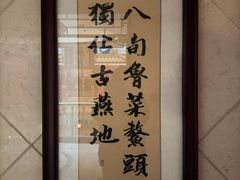 八旬魯菜鰲頭
獨佔古燕地